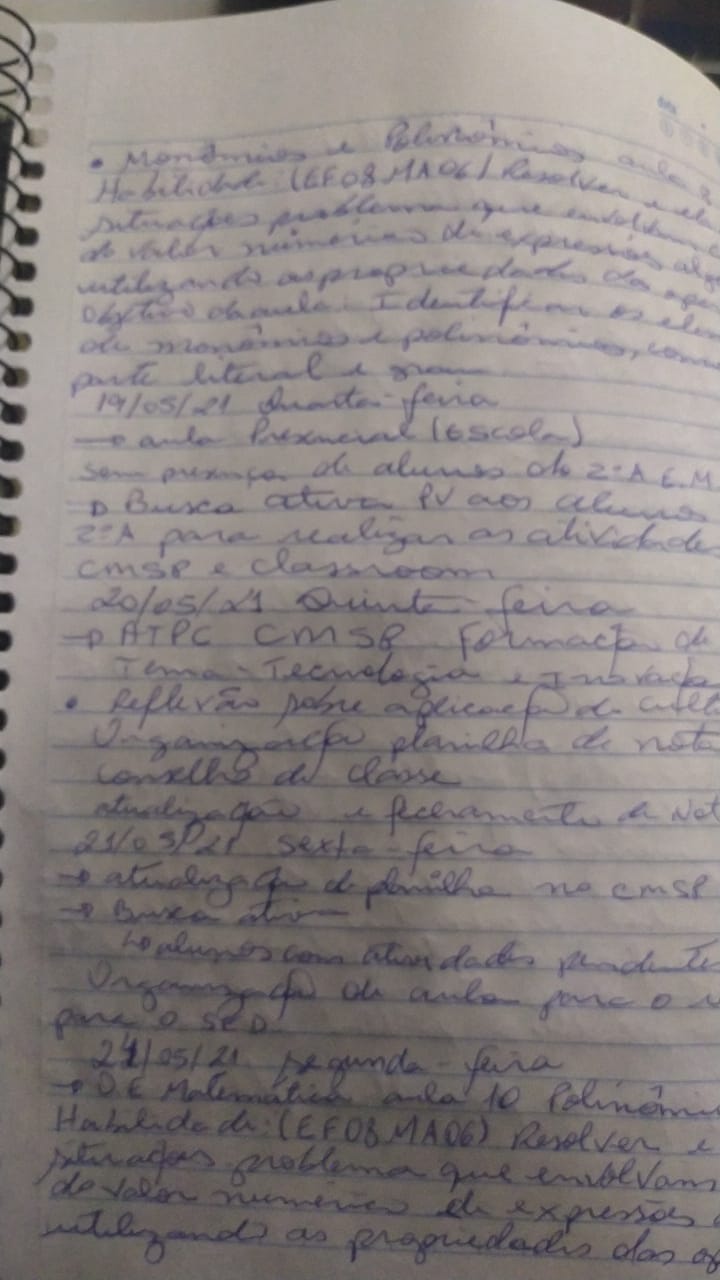 • Monômios e Polinômios aula 9
Habilidade: (EF08MA06) Resolver e ela
situações problema que envolvam c
do valor numérico de expressões alg
utilizando as propriedades das ope
Objetivo da aula: Identificar os elem
de monômios e polinômios, como
parte literal e grau
19/05/21 Quarta-feira
→ aula Presencial (Escola)
Sem presença de alunos do 2ºA E.M
→ Busca ativa PV aos alunos
2ºA para realizar as atividades
CMSP e classroom
20/05/21 Quinta-feira
→ ATPC CMSP Formação de
Tema - Tecnologia e Inovação
• Reflexão sobre aplicação da
Organização planilha de nota
Conselho de classe
atualização e fechamento de Not
21/05/21 sexta-feira
→ atualização de planilha no CMSP
→ Busca ativa
↳ alunos com atividades pendentes
Organização de aula para o
para o SED
24/05/21 segunda-feira
→ O.E Matemática aula 10 Polinômi
Habilidade: (EF08MA06) Resolver e
situações problema que envolvam
do valor numérico de expressões a
utilizando as propriedades das op